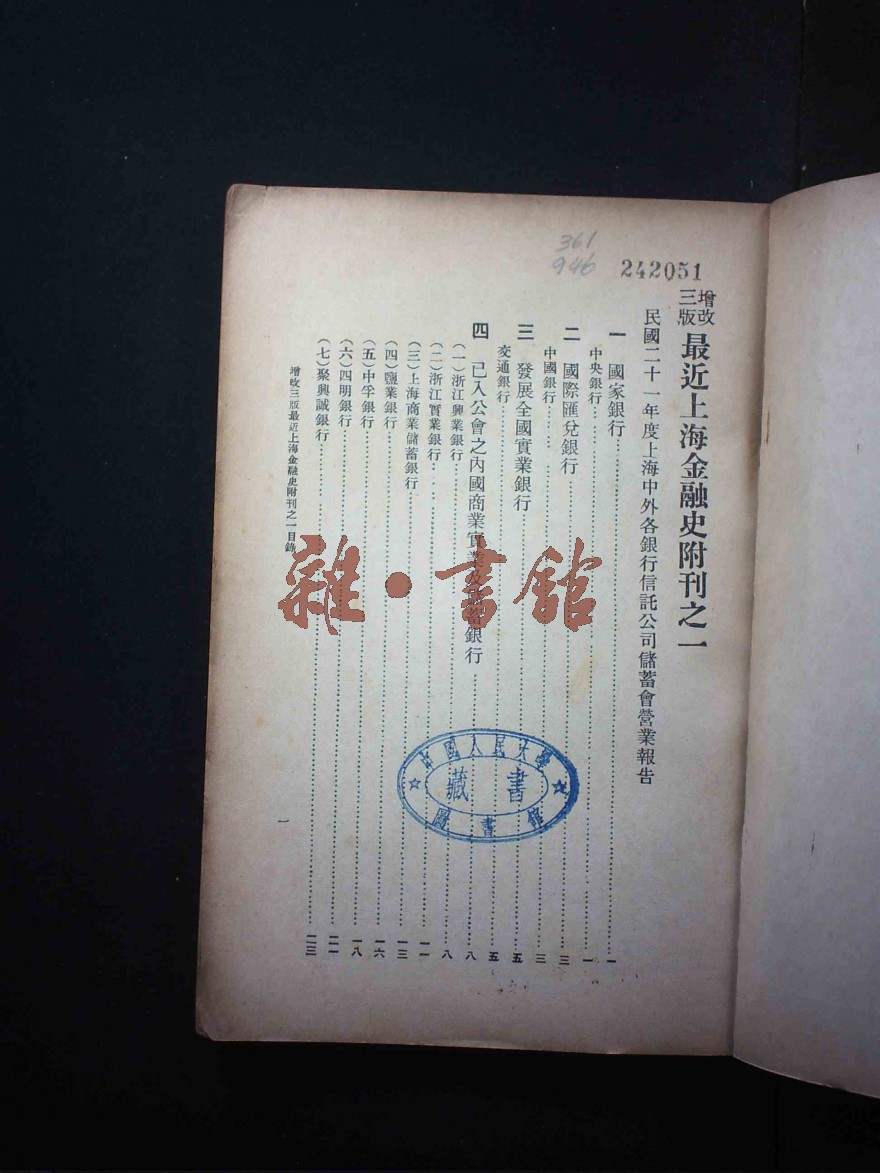 361
946
242051
增改三版 最近上海金融史附刊之一
民國二十一年度上海中外各銀行信託公司儲蓄會營業報告
一 國家銀行 一
中央銀行 一
二 國際匯兌銀行 三
中國銀行 三
三 發展全國實業銀行 五
交通銀行 五
四 已入公會之內國商業實業及儲蓄銀行 八
(一)浙江興業銀行 八
(二)浙江實業銀行 一一
(三)上海商業儲蓄銀行 一三
(四)鹽業銀行 一六
(五)中孚銀行 一八
(六)四明銀行 二一
(七)聚興誠銀行 二三
增改三版最近上海金融史附刊之一目錄
一
中國人民大學
藏書
圖書館
雜·書館